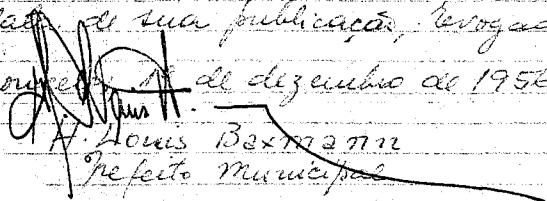 de sua publicação, revogad
de dezembro de 1956
H. Louis Baxmann
Prefeito Municipal